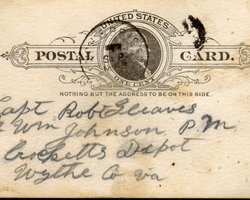 UNITED STATES
POSTAL CARD.
ONE CENT
NOTHING BUT THE ADDRESS TO BE ON THIS SIDE.
Capt Robt Gleaves
Wm Johnson, P.M.
Crocketts Depot
Wythe Co Va